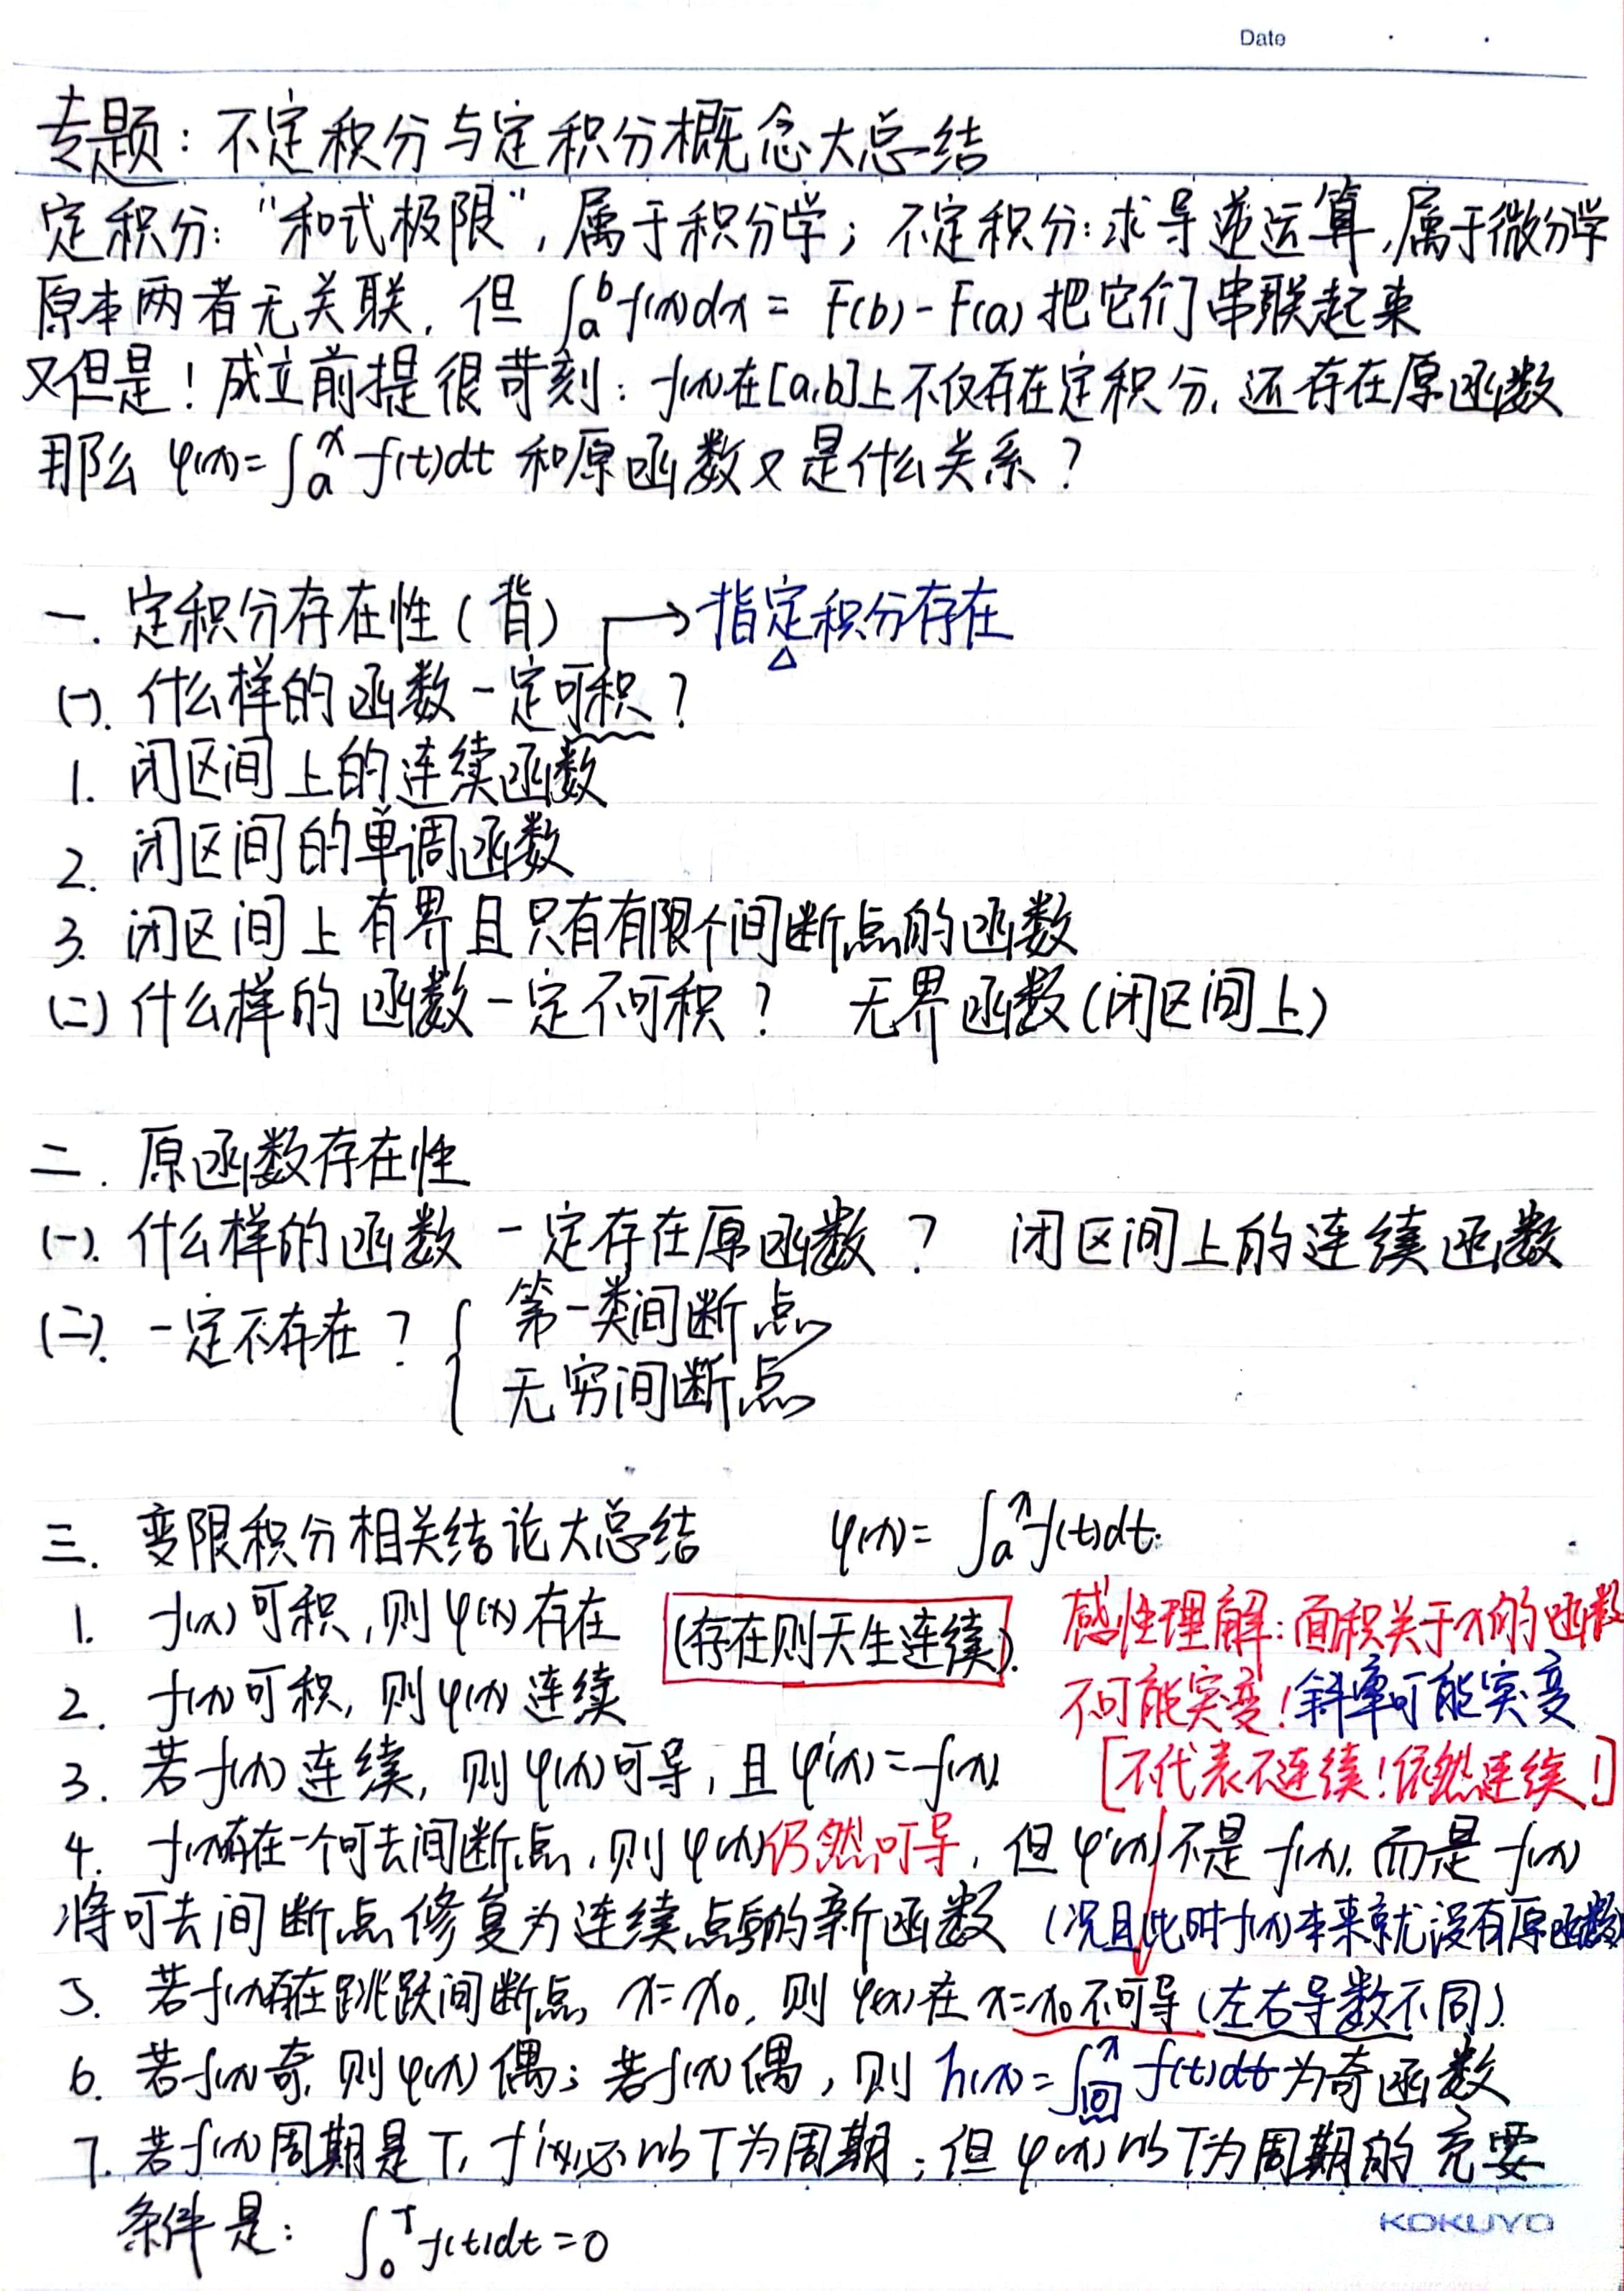 Date
专题：不定积分与定积分概念大总结
定积分："和式极限"，属于积分学；不定积分：求导逆运算，属于微分学
原本两者无关联，但 ∫ₐᵇ f(x)dx = F(b)-F(a) 把它们串联起来
又但是！成立前提很苛刻：f(x)在[a,b]上不仅存在定积分，还存在原函数
那么 φ(x)=∫ₐˣ f(t)dt 和原函数又是什么关系？
一. 定积分存在性（背） → 指定积分存在
△
(一). 什么样的函数一定可积？
1. 闭区间上的连续函数
2. 闭区间的单调函数
3. 闭区间上有界且只有有限个间断点的函数
(二) 什么样的函数一定不可积？ 无界函数(闭区间上)
二. 原函数存在性
(一). 什么样的函数一定存在原函数？ 闭区间上的连续函数
(二). 一定不存在？ { 第一类间断点
无穷间断点
三. 变限积分相关结论大总结 φ(x)= ∫ₐˣ f(t)dt.
1. f(x)可积，则φ(x)存在 (存在则天生连续). 感性理解：面积关于x的函数
2. f(x)可积，则φ(x)连续 不可能突变！斜率可能突变
3. 若f(x)连续，则φ(x)可导，且φ'(x)=f(x). [不代表不连续！依然连续！]
4. f(x)存在一个可去间断点，则φ(x)仍然可导，但φ'(x)不是f(x)，而是f(x)
将可去间断点修复为连续点后的新函数 (况且此时f(x)本来就没有原函数
5. 若f(x)存在跳跃间断点 x=x₀，则φ(x)在x=x₀不可导(左右导数不同).
6. 若f(x)奇，则φ(x)偶；若f(x)偶，则h(x)=∫₀ˣ f(t)dt为奇函数
7. 若f(x)周期是T，f'(x)必以T为周期；但φ(x)以T为周期的充要
条件是： ∫₀ᵀ f(t)dt=0
KOKUYO